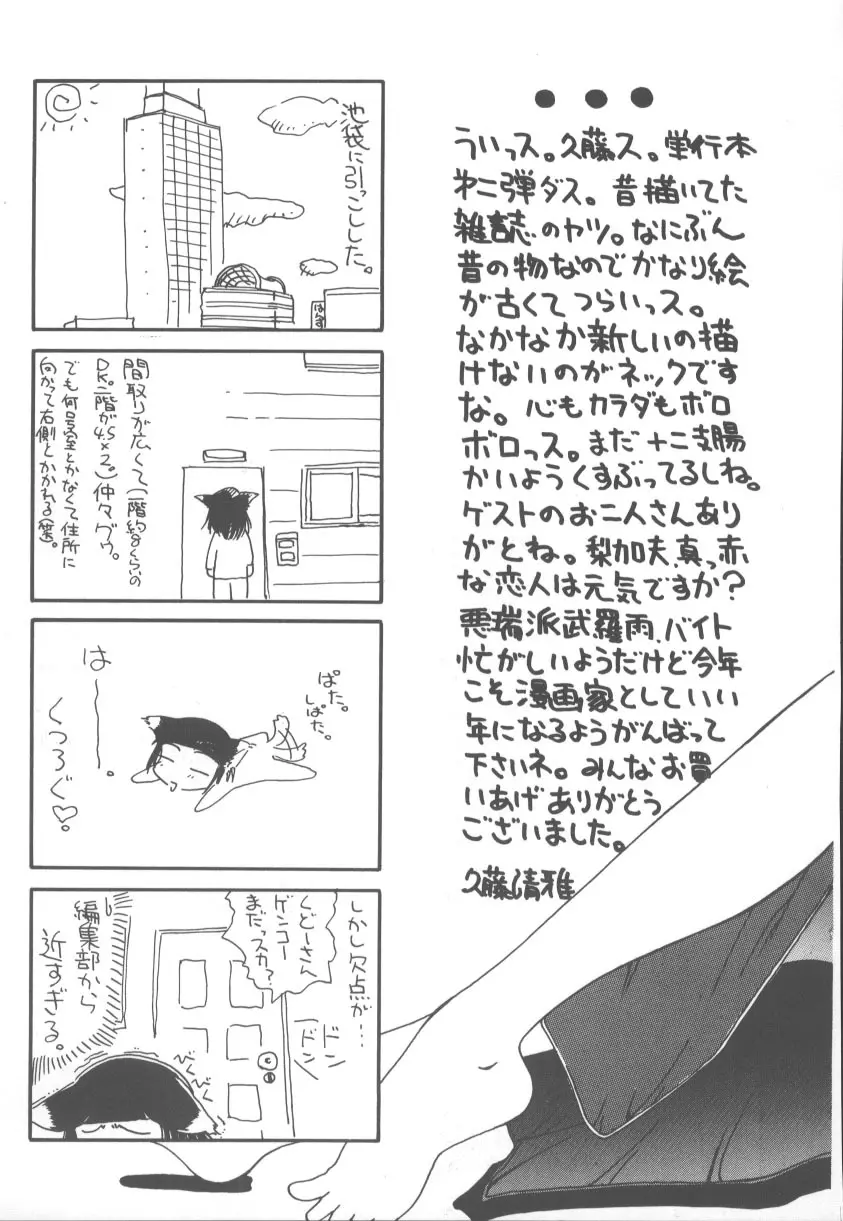 ういっス。久藤ス。単行本
第二弾ダス。昔描いてた
雑誌のヤツ。なにぶん
昔の物なのでかなり絵
が古くてつらいっス。
なかなか新しいの描
けないのがネックです
な。心もカラダもボロ
ボロっス。まだ十二支腸
かいようくすぶってるしね。
ゲストのお二人さんあり
がとね。梨加夫、真っ赤
な恋人は元気ですか?
悪瑞派武羅雨、バイト
忙がしいようだけど今年
こそ漫画家としていい
年になるようがんばって
下さいネ。みんなお買
いあげありがとう
ございました。
久藤清雅
池袋に引っこしした。
はんず
間取りが広くて(一階約8くらいの
DK。二階が4.5×2。)仲々グゥ。
でも何号室とかなくて住所に
向かって右側とかかれる(笑)。
は——。
くつろぐ♡。
ぱた。
しぱた。
しかし欠点が…
くどーさん
ゲンコー
まだっスカ?
ドン
ドン
編集部から
近すぎる。
びくびく